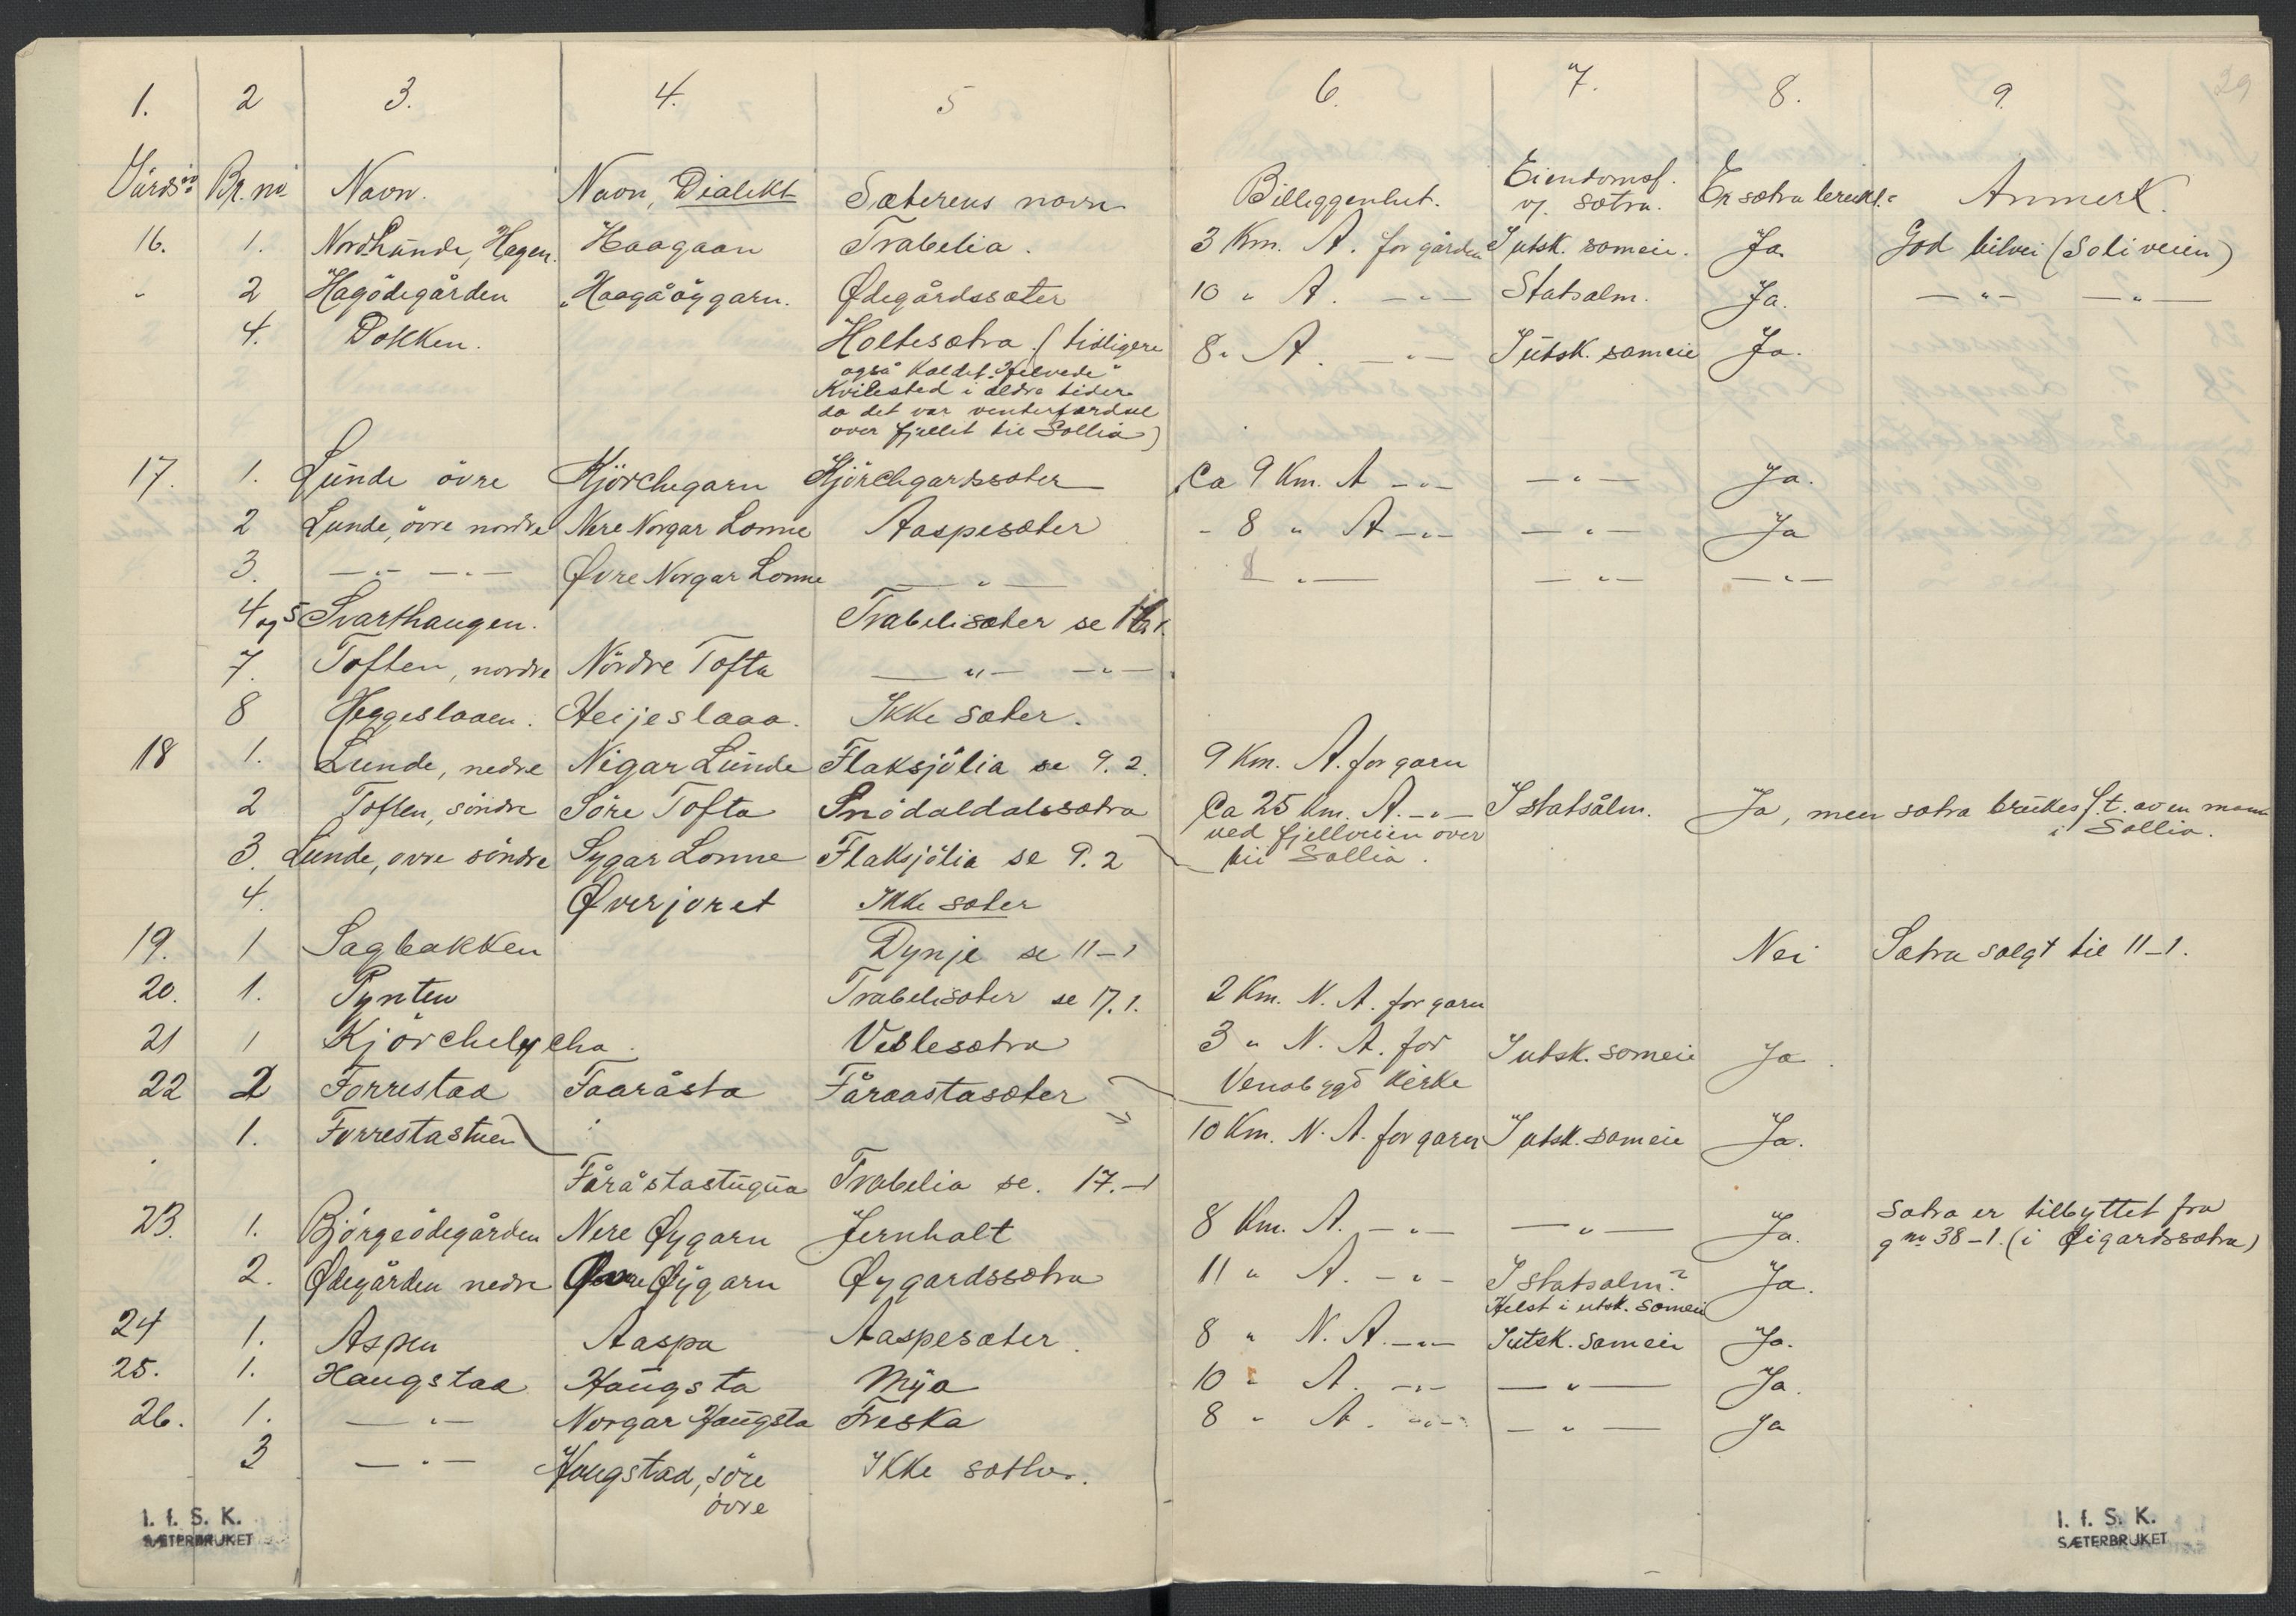 1. 2 3. 4. 5 6. 7. 8. 9. 29
Gårdsno Br. no Navn. Navn, Dialekt Sæterens navn Billiggenhet. Eiendomsf. Er sætra Anmerk.
v. sætra.
16. 1. Nordlunde, Hagen. Haagaan Trabelia. 3 Km. A. for gården I utsk. sameie. Ja God bilvei (Soliveien)
" 2 Hagödegården "Haagåöygarn. Ødegårdssæter 10 " A. —"— Statsalm. Ja. —"— —"—
4. Dokken. Holtesætra. (tidligere 8 " A. —"— I utsk. sameie Ja.
også kaldet "Helvede"
Kvilested i eldre tider
da det var venterfærdsel
over fjellet til Sollia)
17. 1. Lunde övre Kjörchegarn Kjörchgardssæter Ca 9 Km. A —"— —"— Ja.
2 Lunde, övre nordre Nere Norgar Lonne Aaspesæter - 8 " A —"— —"— Ja
3. —"— —"— Øvre Norgar Lonne —"— 8 —"— —"— —"—
4 og 5 Svarthaugen. Trabelisæter se
7. Toften, nordre Nördre Tofta —"— —"—
8 Heggeslaaen. Heijeslaaa. Ikke sæter.
18 1. Lunde, nedre Nigar Lunde Flaksjölia se 9. 2. 9 Km. A. for garn
2 Toften, söndre Söre Tofta Snödaldalssætra Ca 25 Km. A. —"— I statsålm. Ja, men sætra brukes f. t. av en mann
ved fjellveien over i Sollia.
3. Lunde, ovre söndre Sygar Lonne Flaksjölia se 9. 2 til Sollia.
4. Øverjoret Ikke sæter
19. 1 Sagbakken Dynje se 11-1 Nei Sætra solgt til 11-1.
20. 1. Pynten Trabelisæter se 17. 1. 2 Km. N. A. for garn
21 1 Kjörchelycha. Veslesætra 3 " N. A. for I utsk. sameie Ja.
Venabygd kirke
22 2 Forrestad Faaråsta Fåraastasæter
1. Forrestastuen 10 Km. N. A. for garn I utsk. sameie Ja.
Fåråstastugua Trabelia se. 17.-1
23. 1. Björgeödegården Nere Øygarn Jernholt 8 Km. A. —"— —"— Ja. Sætra er tilbyttet fra
gno 38-1. (i Øigardssætra)
2. Ødegården nedre Øvre Øygarn Øygardssætra 11 " A. —"— I statsalm? Ja.
Helst i utsk. sameie
24 1. Aspen Aaspa Aaspesæter. 8 " N. A. —"— I utsk. sameie Ja.
25. 1. Haugstad Haugsta Mya 10 " A. —"— —"— Ja.
26. 1. —"— Norgar Haugsta Freska 8 " A. —"— —"— Ja
3 —"— Haugstad, söre Ikke sæter.
övre
I. f. S. K.
SÆTERBRUKET
I. f. S. K.
SÆTERBRUKET